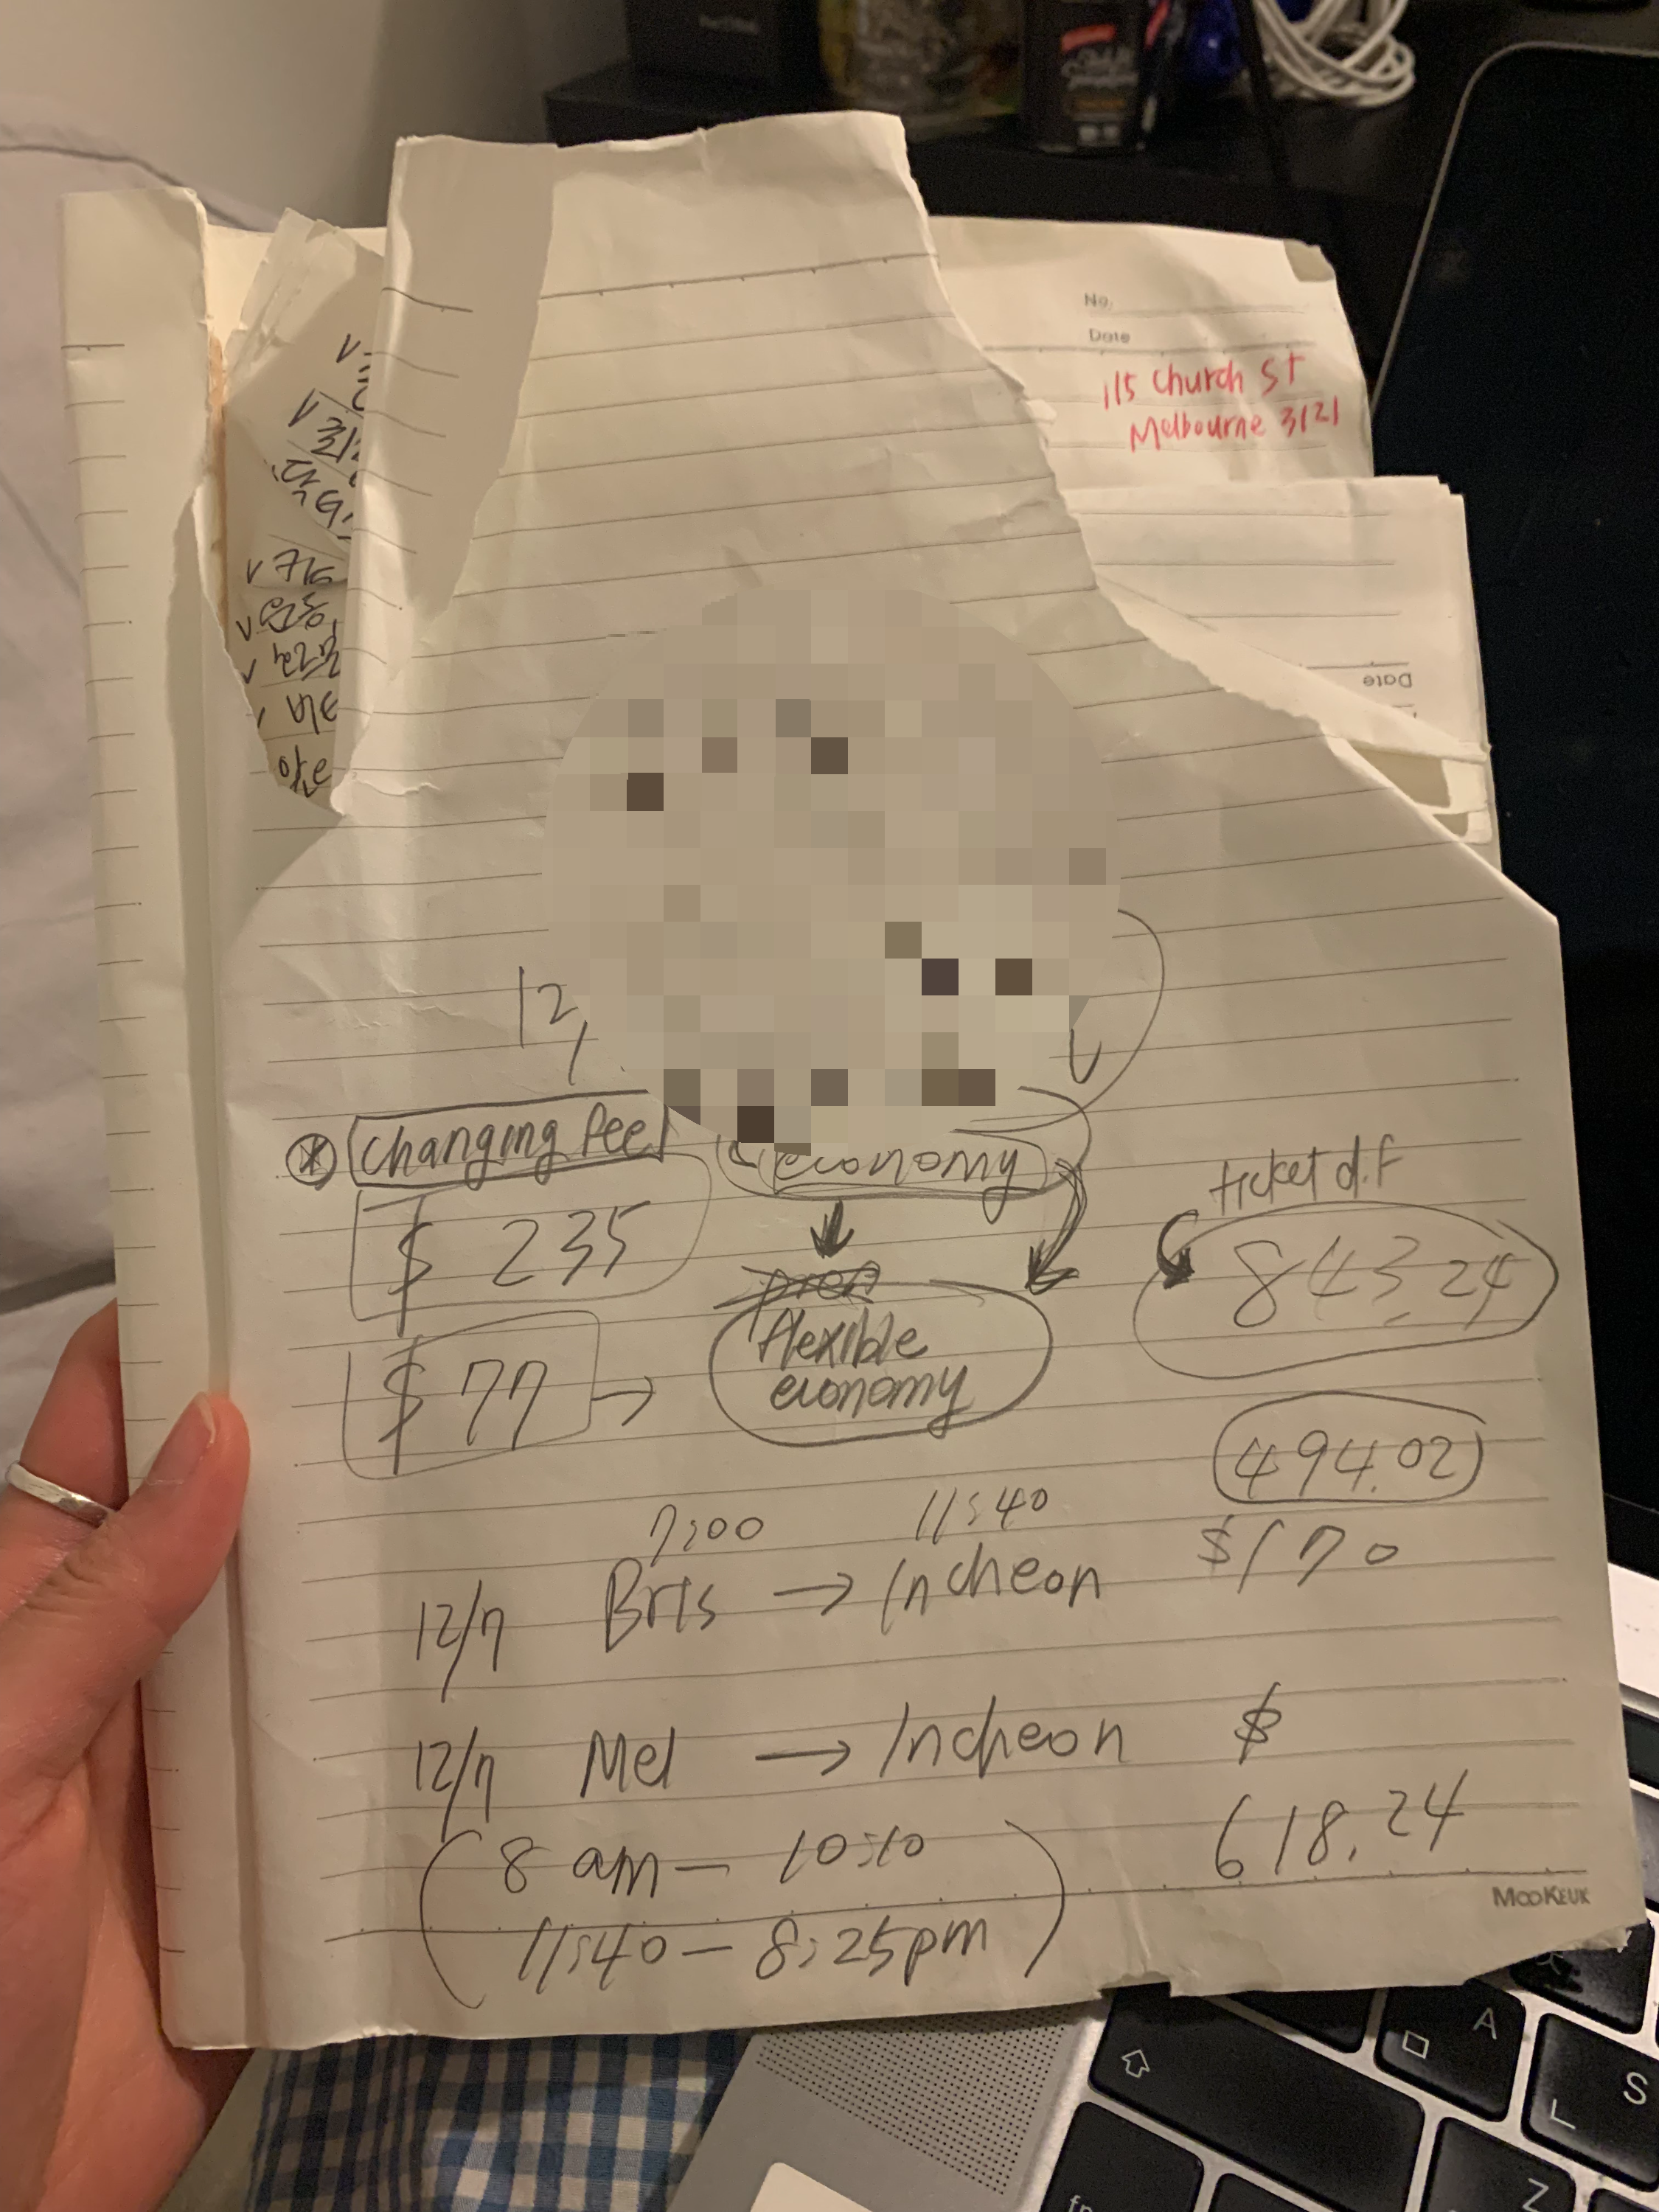 No.
Date
115 Church St
Melbourne 3121
Date
12/
changing fee
economy
ticket dif
$ 235
843.24
flexible
economy
$ 77 →
494.02
7:00 11:40
12/7 Bris → Incheon $170
12/7 Mel → Incheon $
618.24
8 am — 10:10
11:40 — 8:25pm
MOOKEUK
A
S
Z
fn